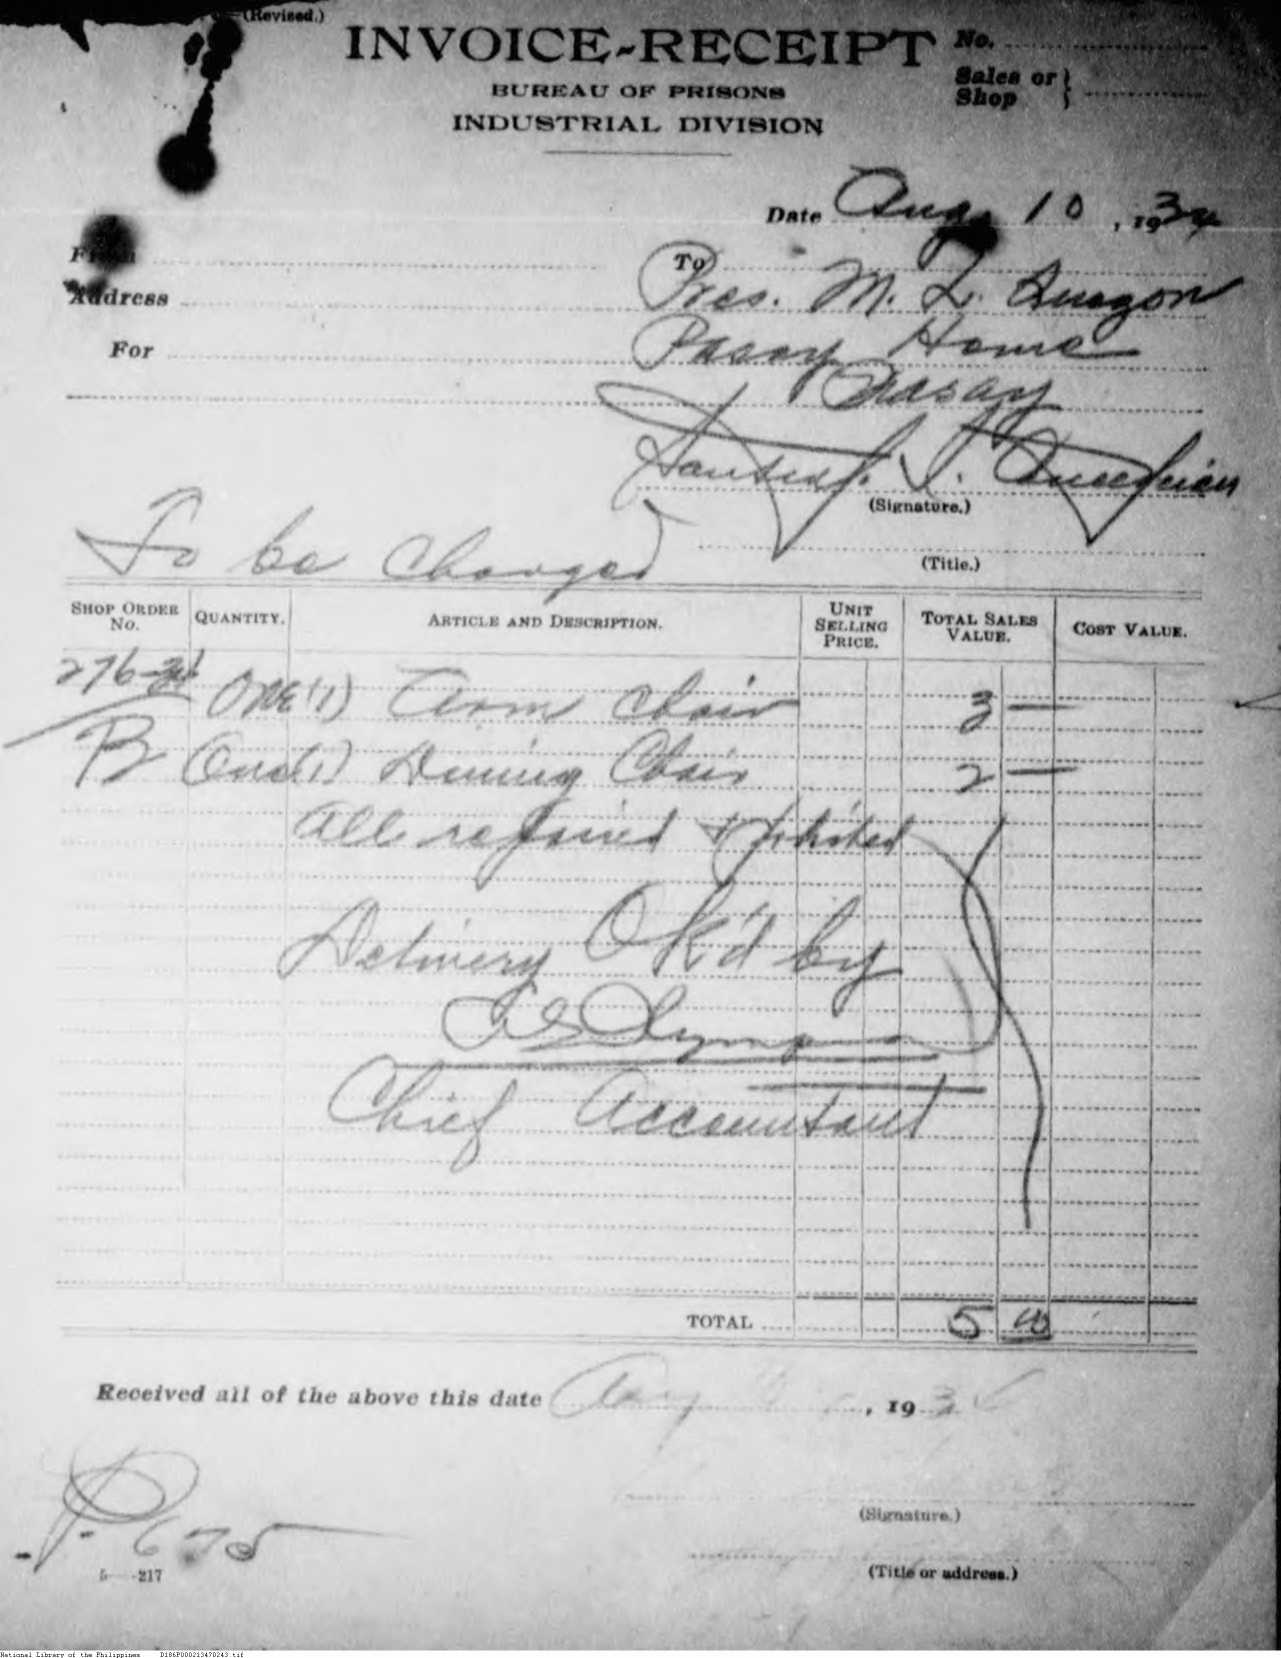 (Revised.)
INVOICE-RECEIPT
No.
Sales or
Shop
BUREAU OF PRISONS
INDUSTRIAL DIVISION
Date Aug. 10, 1934
From
To
Address
Pres. M. L. Quezon
For
Pasay Home
Pasay
(Signature.)
To be charged
(Title.)
SHOP ORDER NO. QUANTITY. ARTICLE AND DESCRIPTION. UNIT SELLING PRICE. TOTAL SALES VALUE. COST VALUE.
276-34 One (1) Arm Chair 3 —
B One (1) Dining Chair 2 —
All repaired &
Delivery OK'd by
Chief Accountant
TOTAL 5 00
Received all of the above this date Aug , 193
(Signature.)
P- 675
(Title or address.)
5 -217
National Library of the Philippines D186P000213470243.tif